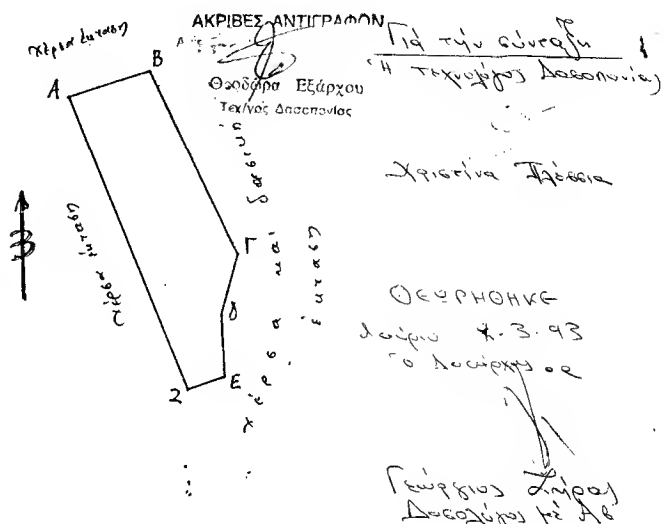 ΑΚΡΙΒΕΣ ΑΝΤΙΓΡΑΦΟΝ
Θεοδώρα Εξάρχου
Τεχ/γος Δασοπονίας
Γιά τήν σύνταξη
Ἡ τεχνολόγος Δασοπονίας
Χριστίνα Πλέσσια
ΘΕΩΡΗΘΗΚΕ
Λαύριο 3.93
Ὁ Δασάρχης
Γεώργιος
Δασολόγος μέ Αβ
χέρσα ἔκταση
A
B
Γ
δ
E
Ζ
χέρσα ἔκταση
χέρσα καί δασική
ἔκταση
Β